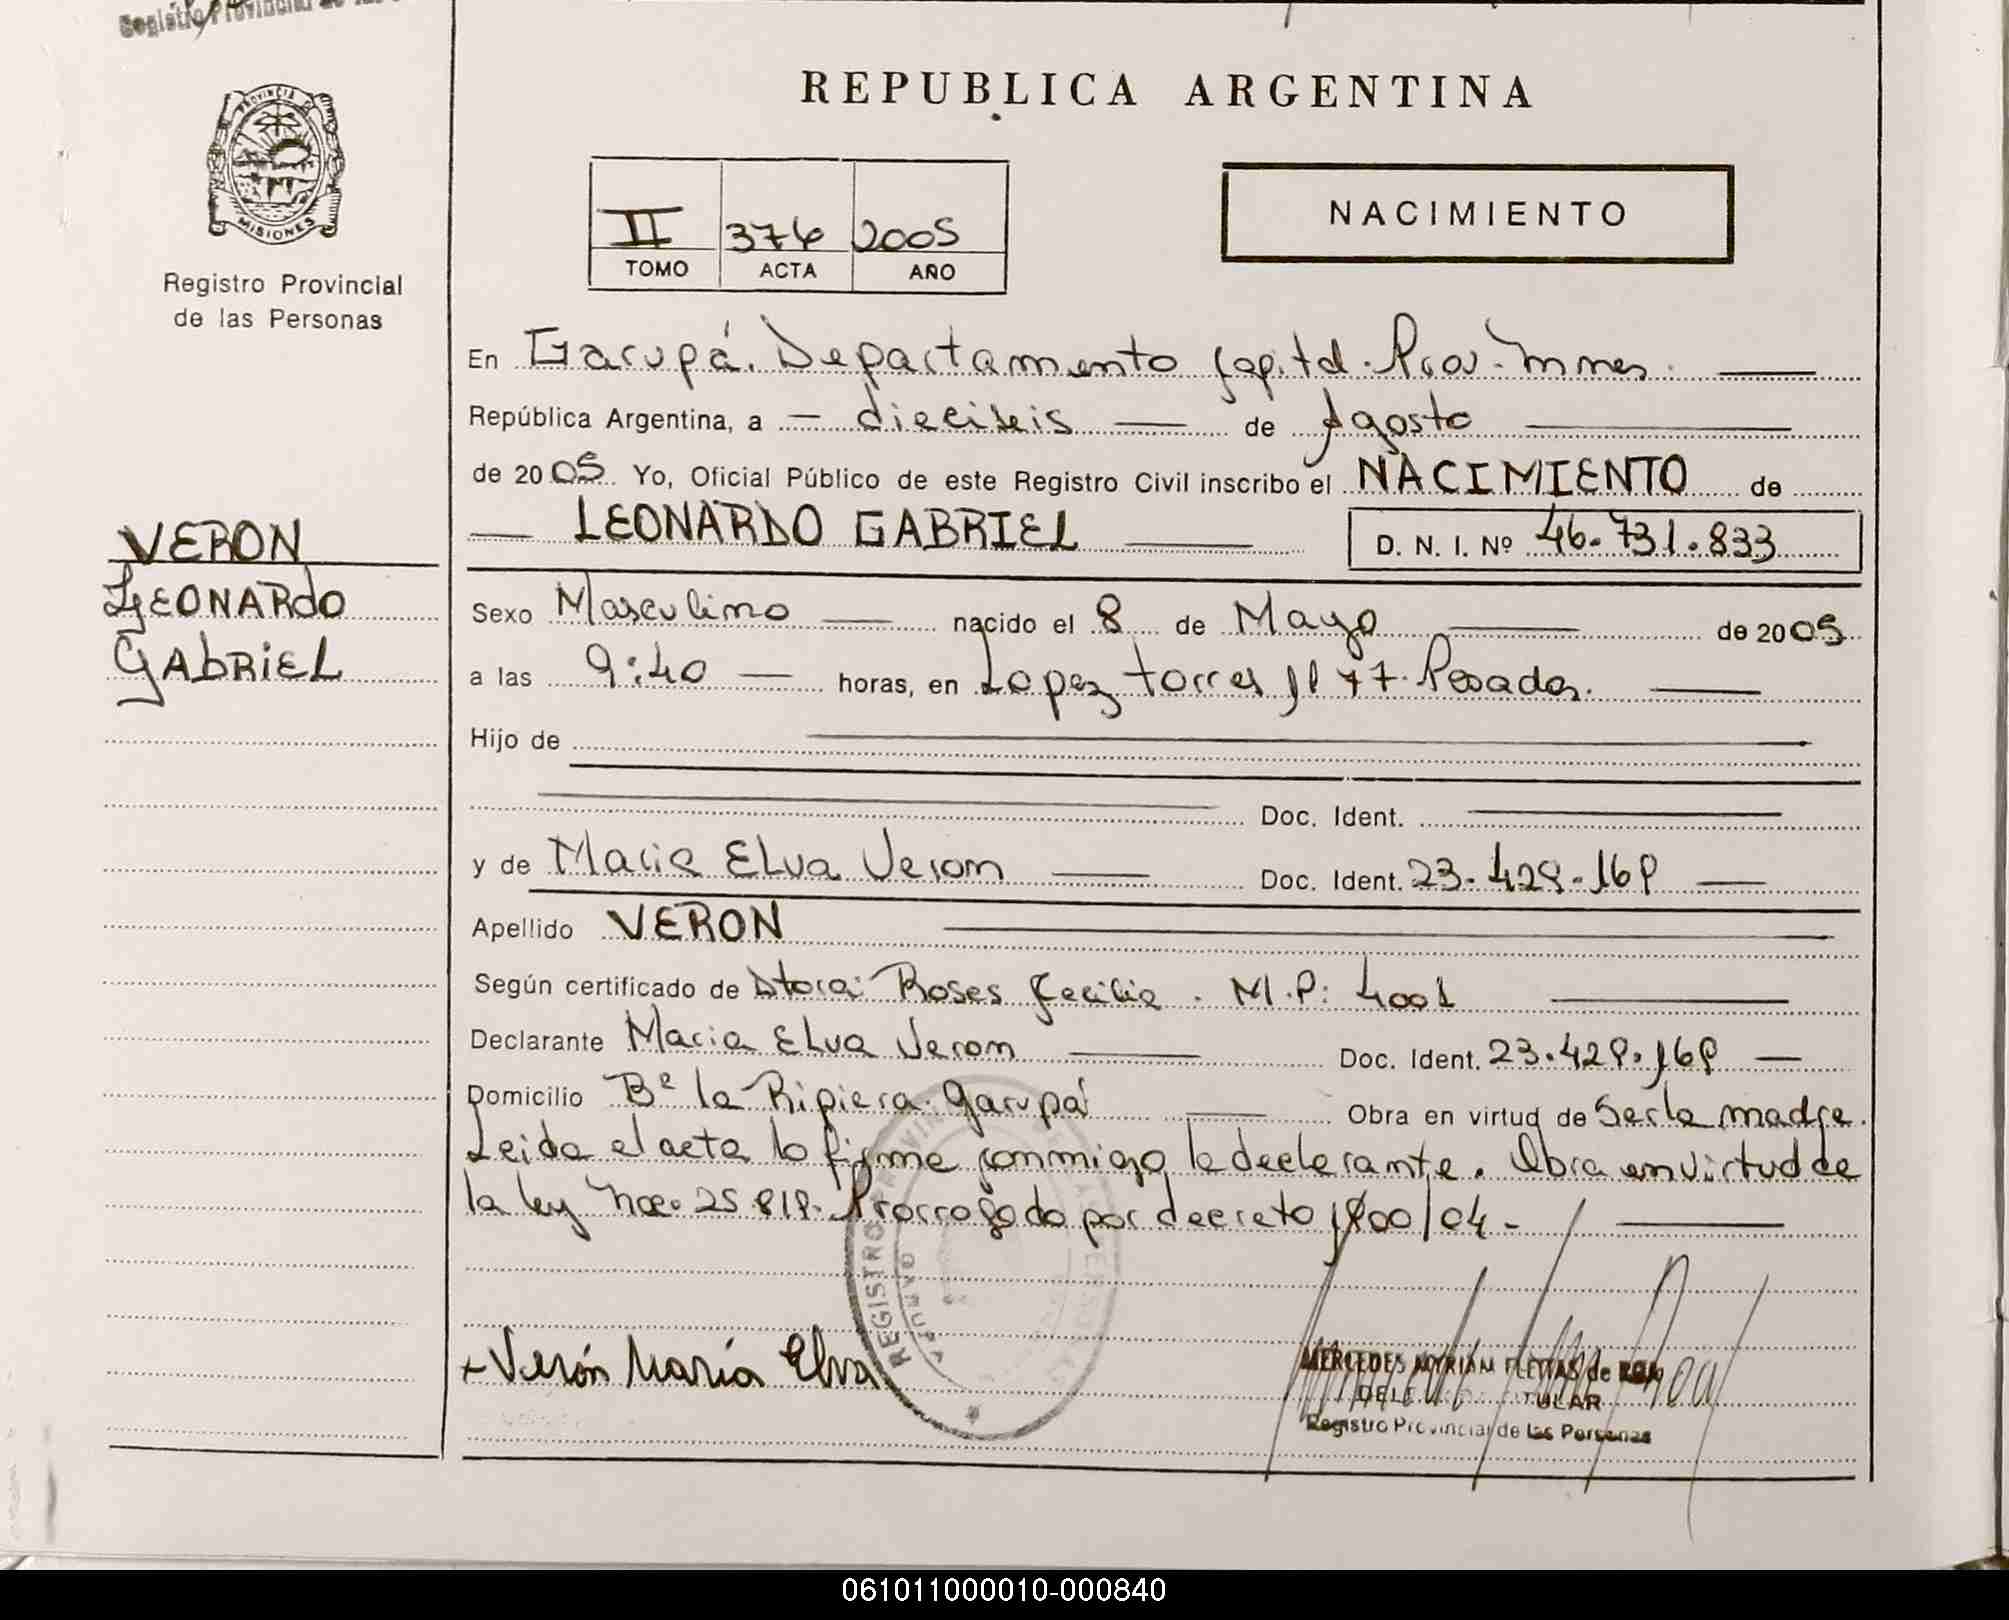 Registro Provincial de las
REPUBLICA ARGENTINA
PROVINCIA DE
MISIONES
Registro Provincial
de las Personas
II 376 2005
TOMO ACTA AÑO
NACIMIENTO
En Garupá. Departamento Capital. Prov. Mnes.
República Argentina, a dieciseis de Agosto
de 2005 Yo, Oficial Público de este Registro Civil inscribo el NACIMIENTO de
LEONARDO GABRIEL D. N. I. Nº 46.731.833
VERON
LEONARdO
GAbRiEL
Sexo Masculino nacido el 8 de Mayo de 2005
a las 9:40 horas, en Lopez torres 1177. Posadas.
Hijo de
Doc. Ident.
y de Maria Elva Veron Doc. Ident. 23.429.169
Apellido VERON
Según certificado de Dtora: Roses Cecilia. M.P: 4001
Declarante Maria Elva Veron Doc. Ident. 23.429.169
Domicilio Bº la Ripiera. Garupá Obra en virtud de Ser la madre.
Leida el acta la firma conmigo la declarante. Obra en virtud de
la ley nro. 25.819. Prorrogado por decreto 1900/04-
REGISTRO PROVINCIAL
+ Verón María Elva
MERCEDES MYRIAN FLEITAS de
DELEGADA TITULAR
Registro Provincial de las Personas
061011000010-000840